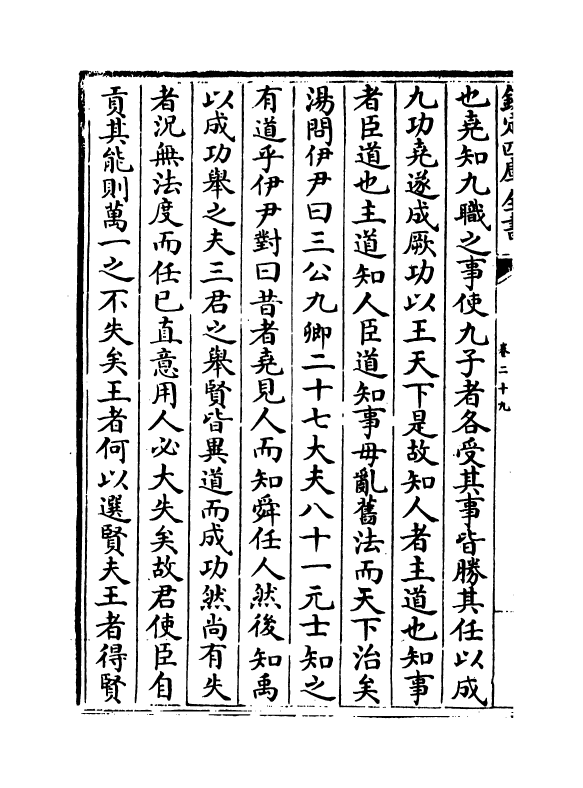 欽定四庫全書
卷二十九
也堯知九職之事使九子者各受其事皆勝其任以成
九功堯遂成厥功以王天下是故知人者主道也知事
者臣道也主道知人臣道知事毋亂舊法而天下治矣
湯問伊尹曰三公九卿二十七大夫八十一元士知之
有道乎伊尹對曰昔者堯見人而知舜任人然後知禹
以成功舉之夫三君之舉賢皆異道而成功然尚有失
者況無法度而任已直意用人必大失矣故君使臣自
貢其能則萬一之不失矣王者何以選賢夫王者得賢